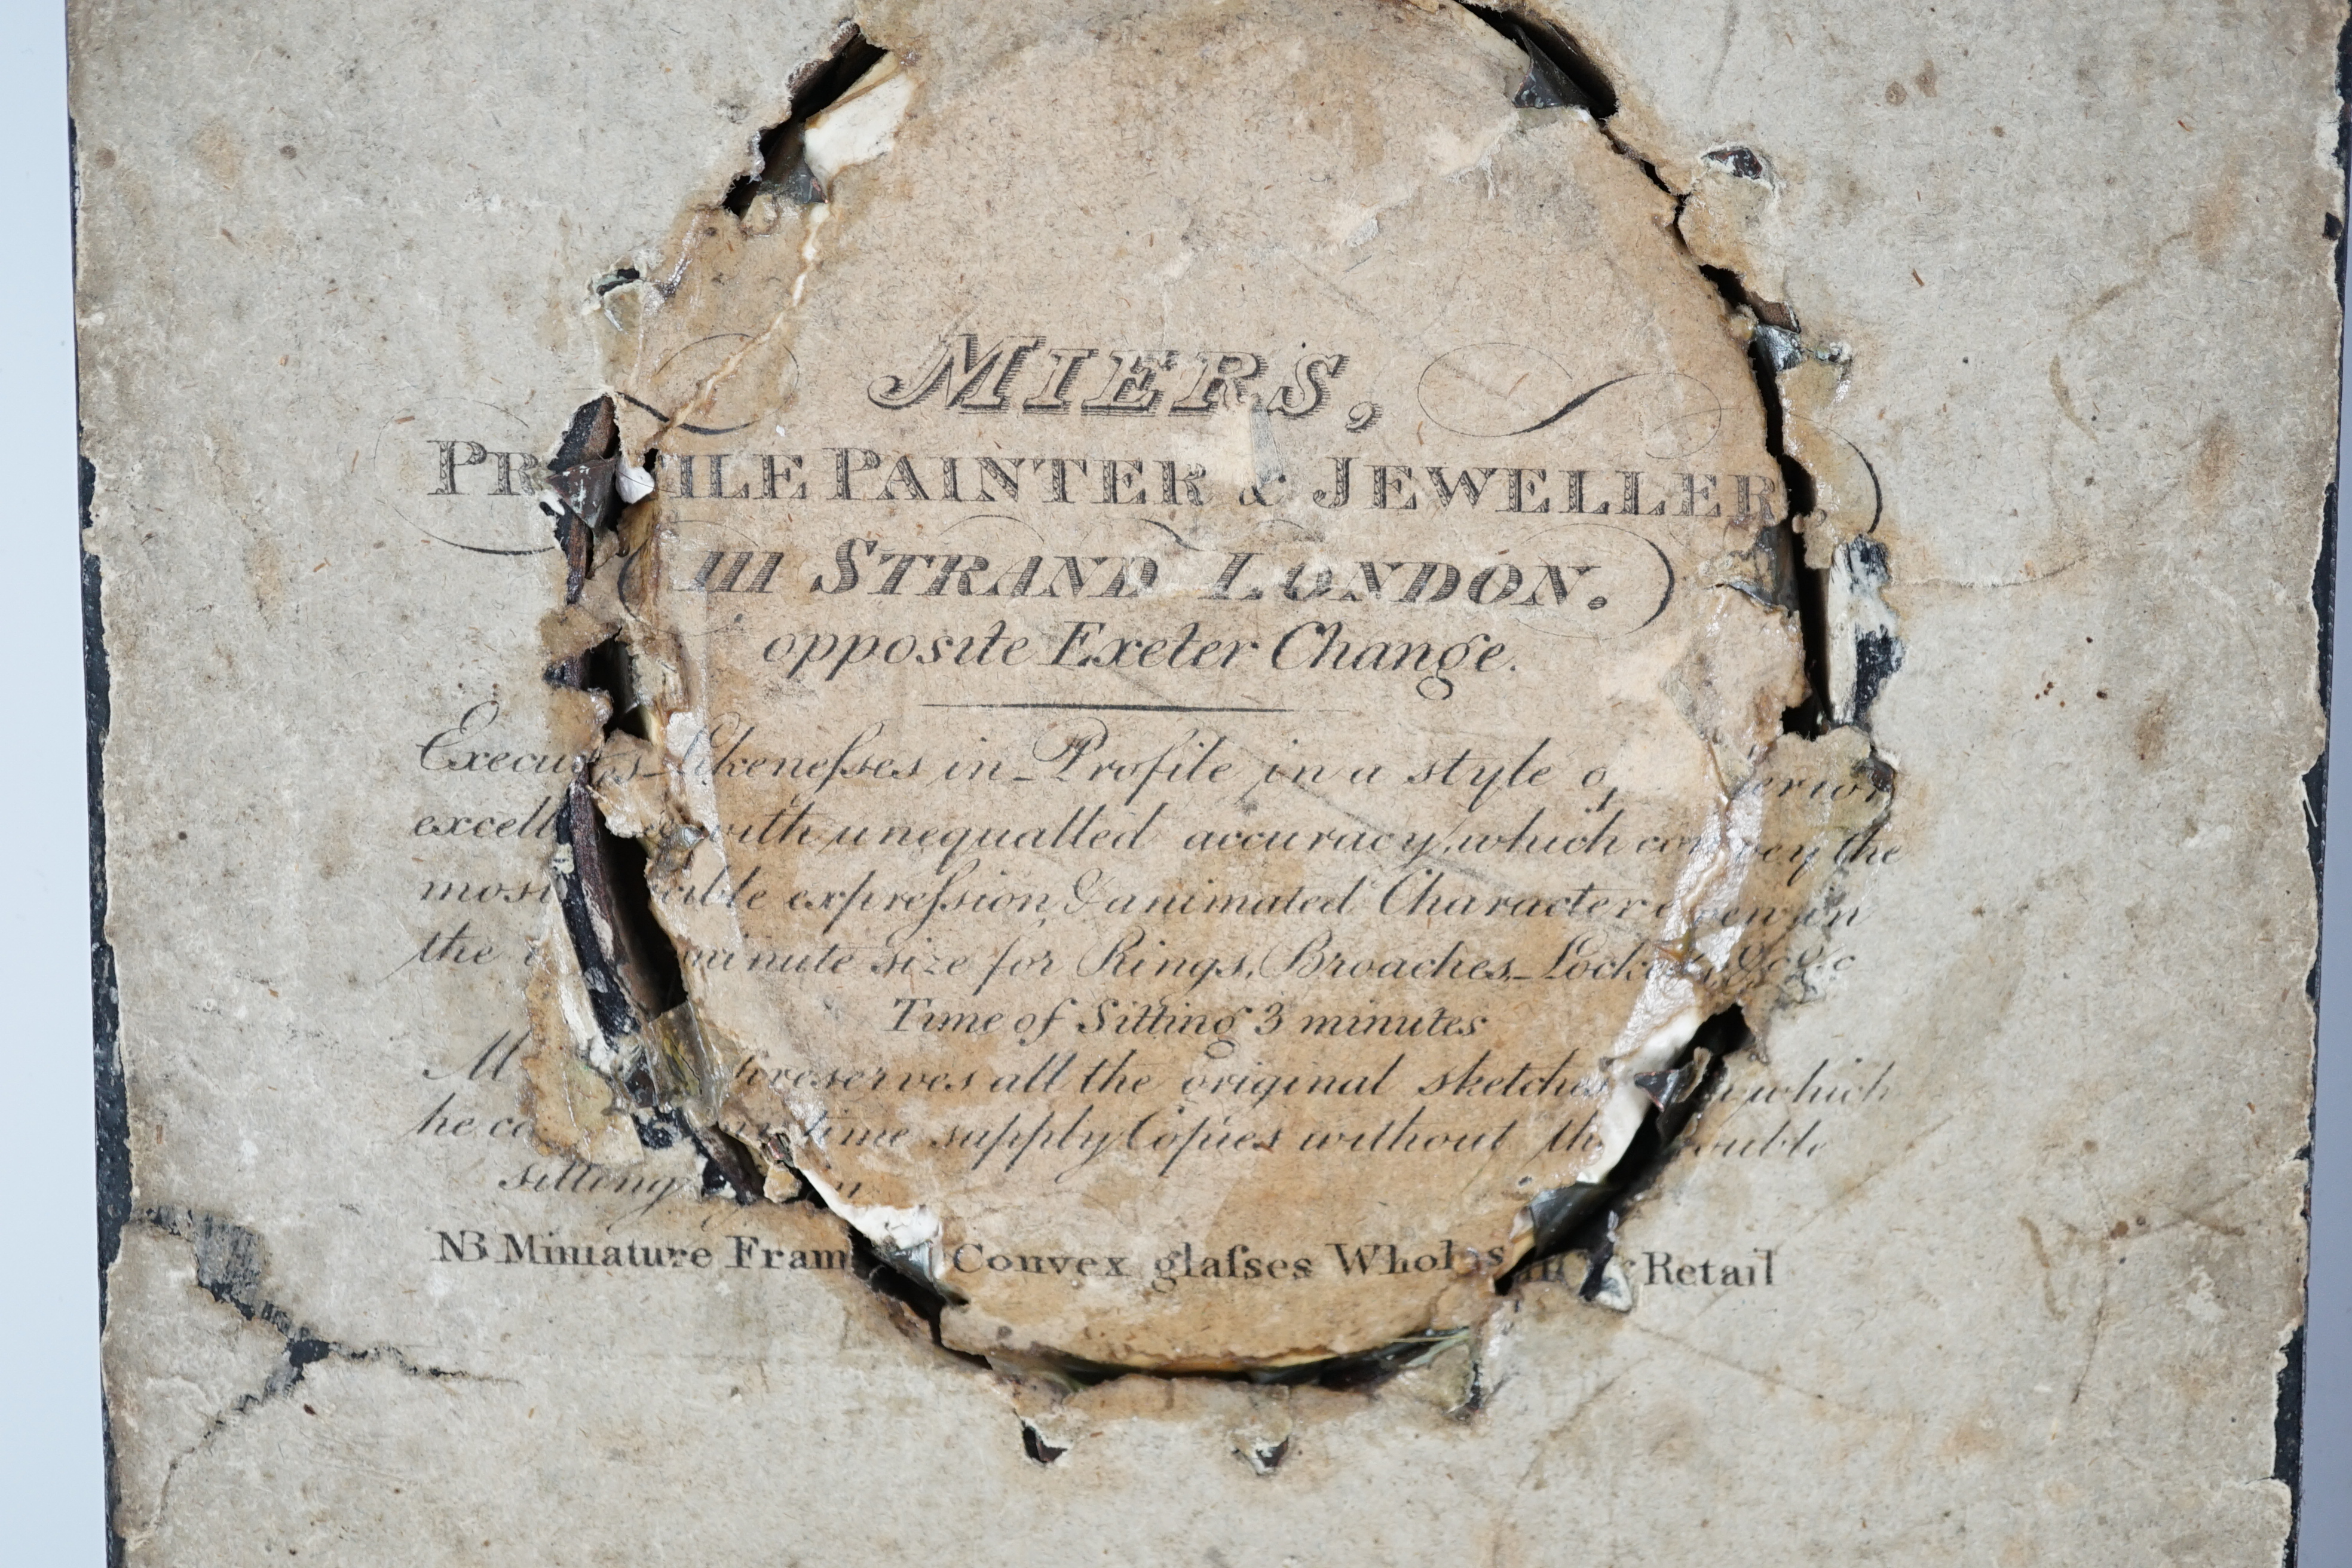 MIERS,
PROFILE PAINTER & JEWELLER,
111 STRAND LONDON.
opposite Exeter Change.
Executes Likeneſses in Profile in a style of
excell with unequalled accuracy, which convey the
most expreſsion, & animated Character even in
the minute size for Rings, Broaches, Lockets, &c &c
Time of Sitting 3 minutes
preserves all the original sketches which
he time supply Copies without the trouble
sitting
NB Miniature Fram Convex glaſses Wholesale & Retail